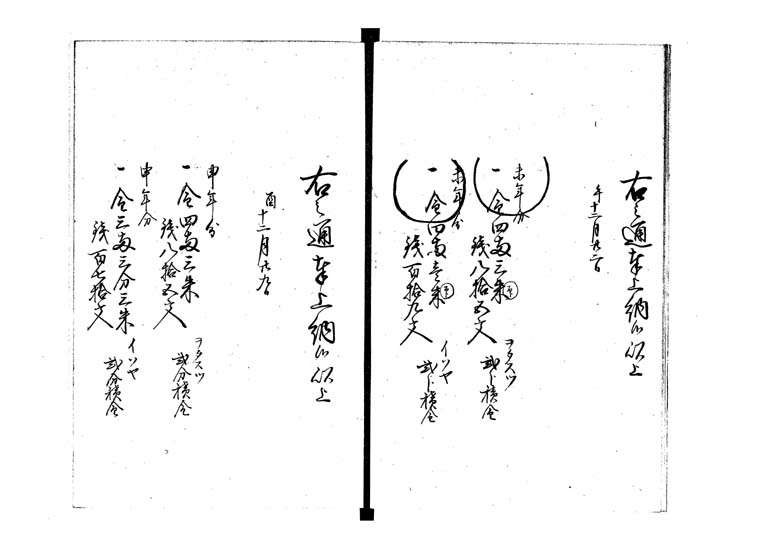 右之通奉上納候以上
午十二月廿二日
未年分
一金四両三朱
銭八拾五文
ヲタスツ
弐分積金
未年分
一金四両壱朱
銭百拾九文
イソヤ
弐分積金
右之通奉上納候以上
酉十二月廿九日
申年分
一金四両三朱
銭八拾五文
ヲタスツ
弐分積金
申年分
一金三両三分三朱
銭百七拾文
イソヤ
弐分積金